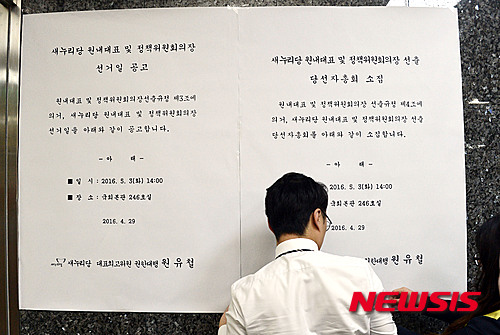 새누리당 원내대표 및 정책위원회의장
선거일 공고
원내대표 및 정책위원회의장선출규정 제3조에
의거, 새누리당 원내대표 및 정책위원회의장
선거일을 아래와 같이 공고합니다.
- 아 래 -
■ 일 시 : 2016. 5. 3(화) 14:00
■ 장 소 : 국회본관 246호실
2016. 4. 29
새누리당 대표최고위원 권한대행 원 유 철
새누리당 원내대표 및 정책위원회의장 선출
당선자총회 소집
원내대표 및 정책위원회의장 선출규정 제4조에
의거, 새누리당 원내대표 및 정책위원회의장 선출
당선자총회를 아래와 같이 소집합니다.
- 아 래 -
2016. 5. 3(화) 14:00
국회본관 246호실
2016. 4. 29
권한대행 원 유 철
NEWSIS